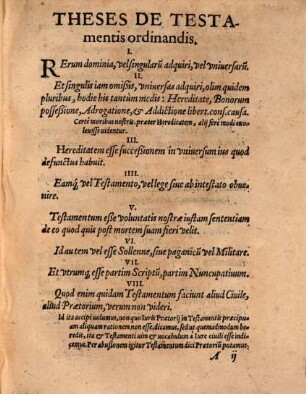 THESES DE TESTA-
mentis ordinandis.
I.
RErum dominia, vel singularū adquiri, vel vniuersarū.
II.
Et singulis iam omissis, vniuersas adquiri, olim quidem
pluribus, hodie his tantùm modis: Hereditate, Bonorum
possessione, Adrogatione, & Addictione libert. cons. causa.
Certè moribus nostris præter Hereditatem, alij ferè modi exoleuisse videntur.
III.
Hereditatem esse successionem in vniuersum ius quod
defunctus habuit.
IIII.
Eamq́; vel Testamento, vel lege siue ab intestato obue-
nire.
V.
Testamentum esse voluntatis nostræ iustam sententiam
de eo quod quis post mortem suam fieri velit.
VI.
Id autem vel esse Sollenne, siue paganicū vel Militare.
VII.
Et vtrumq́; esse partim Scriptū, partim Nuncupatiuum.
VIII.
Quod enim quidam Testamentum faciunt aliud Ciuile,
aliud Prætorium, verum non videri.
Id ita accipi volumus, non quo Iuris Prætorij in Testamentis præcipu-
am aliquam rationem non esse dicamus, sed ut quemadmodum he-
redit, ita & Testamenti uim & uocabulum à Iure ciuili esse indi-
cemus. Per abusionem igitur Testamentum dici Prætoriū putamus.
A ij